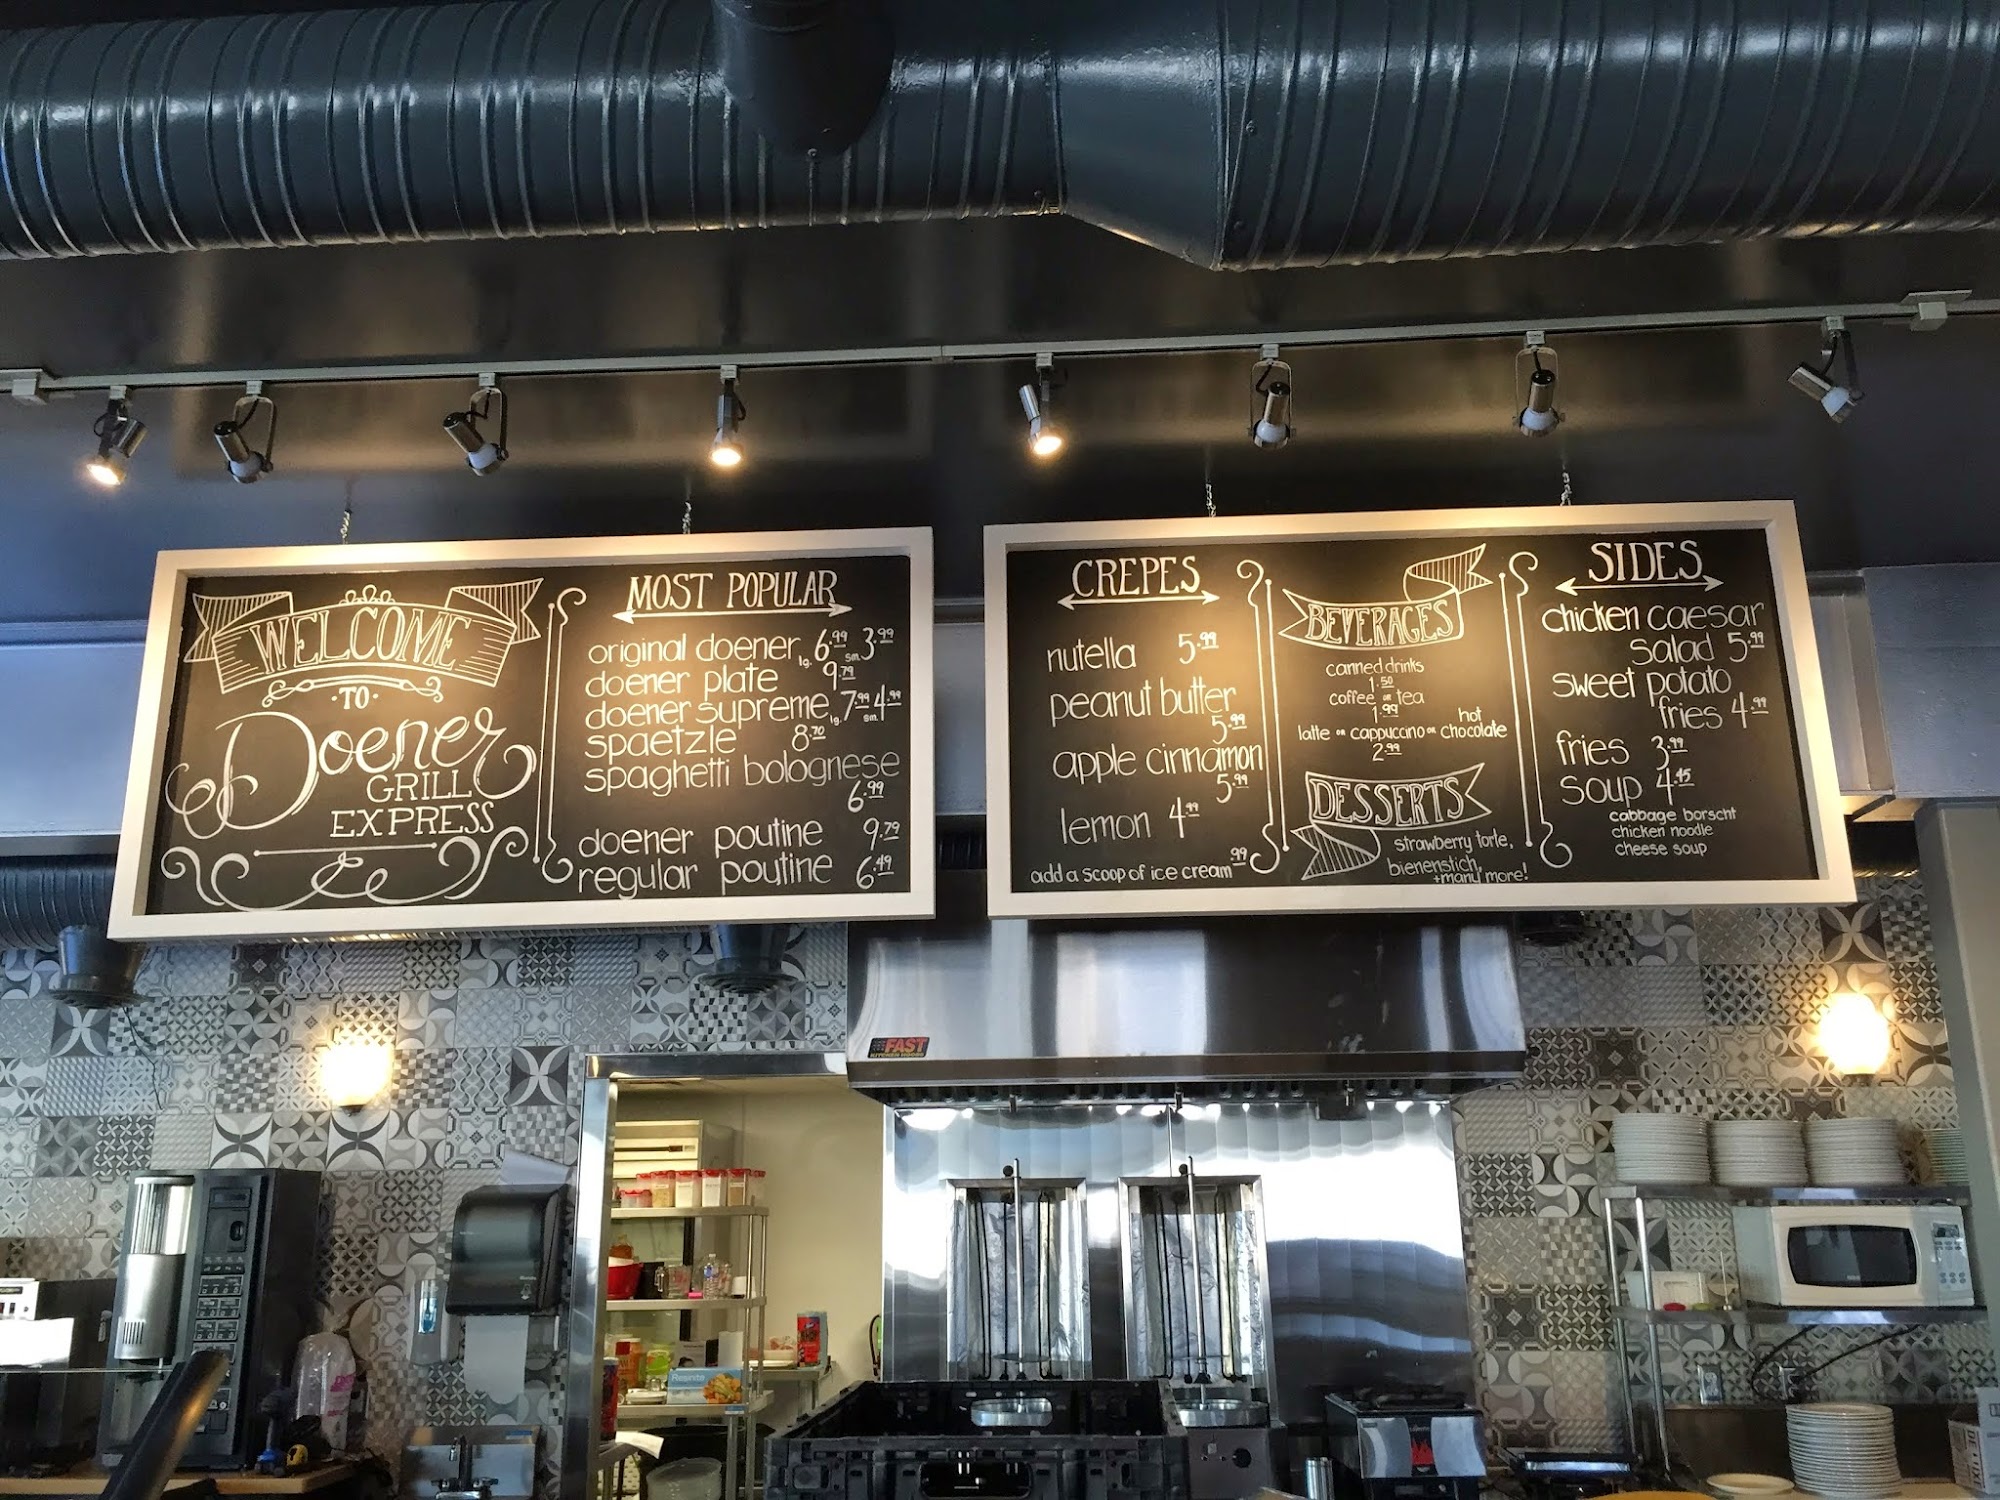 WELCOME
TO
Doener
GRILL
EXPRESS
MOST POPULAR
original doener lg. 6.99 sm. 3.99
doener plate 9.79
doener supreme lg. 7.99 sm. 4.99
spaetzle 8.70
spaghetti bolognese
6.99
doener poutine 9.79
regular poutine 6.49
CREPES
nutella 5.99
peanut butter
5.99
apple cinnamon
5.99
lemon 4.99
add a scoop of ice cream .99
BEVERAGES
canned drinks
1.50
coffee or tea
1.99
latte or cappuccino or hot chocolate
2.99
DESSERTS
strawberry torte,
bienenstich,
+many more!
SIDES
chicken caesar
salad 5.99
sweet potato
fries 4.99
fries 3.99
soup 4.45
cabbage borscht
chicken noodle
cheese soup
FAST
KITCHEN HOODS
Resinite